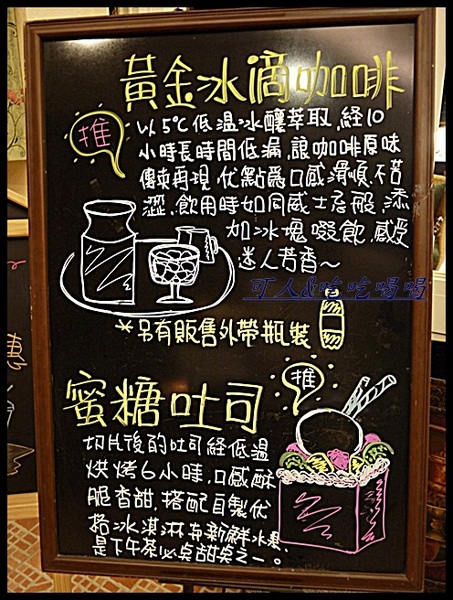 黃金冰滴咖啡
推
以5℃低溫冰釀萃取,經10
小時長時間低漏,讓咖啡原味
傳來再現 优點爲口感滑順,不苦
澀,飲用時如同威士忌般,添
加冰塊啜飲,感受
迷人芳香~
可人&吃吃喝喝
*另有販售外帶瓶裝
推
蜜糖吐司
切片後的吐司經低溫
烘烤6小時,口感酥
脆香甜,搭配自製优
格冰淇淋与新鮮水果,
是下午茶必点甜点之一。
惠